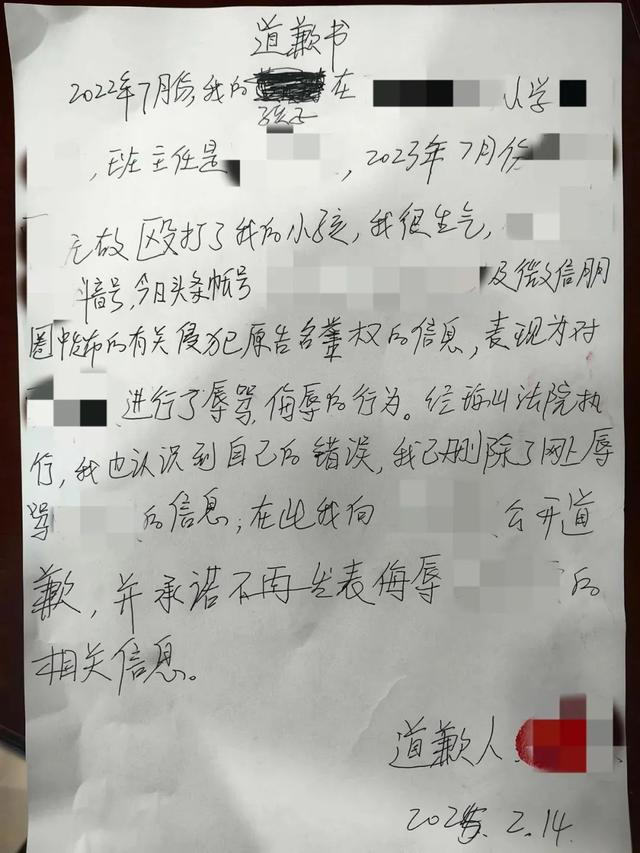 道歉书
2022年7月份,我的在小学
孩子
,班主任是,2023年7月份
无故殴打了我的小孩,我很生气,
音号,今日头条帐号及微信朋
圈中发布的有关侵犯原告名誉权的信息,表现为对
进行了辱骂,侮辱的行为。经法院执
行,我也认识到自己的错误,我已删除了网上辱
骂的信息,在此我向公开道
歉,并承诺不再发表侮辱的
相关信息。
道歉人
2025.2.14